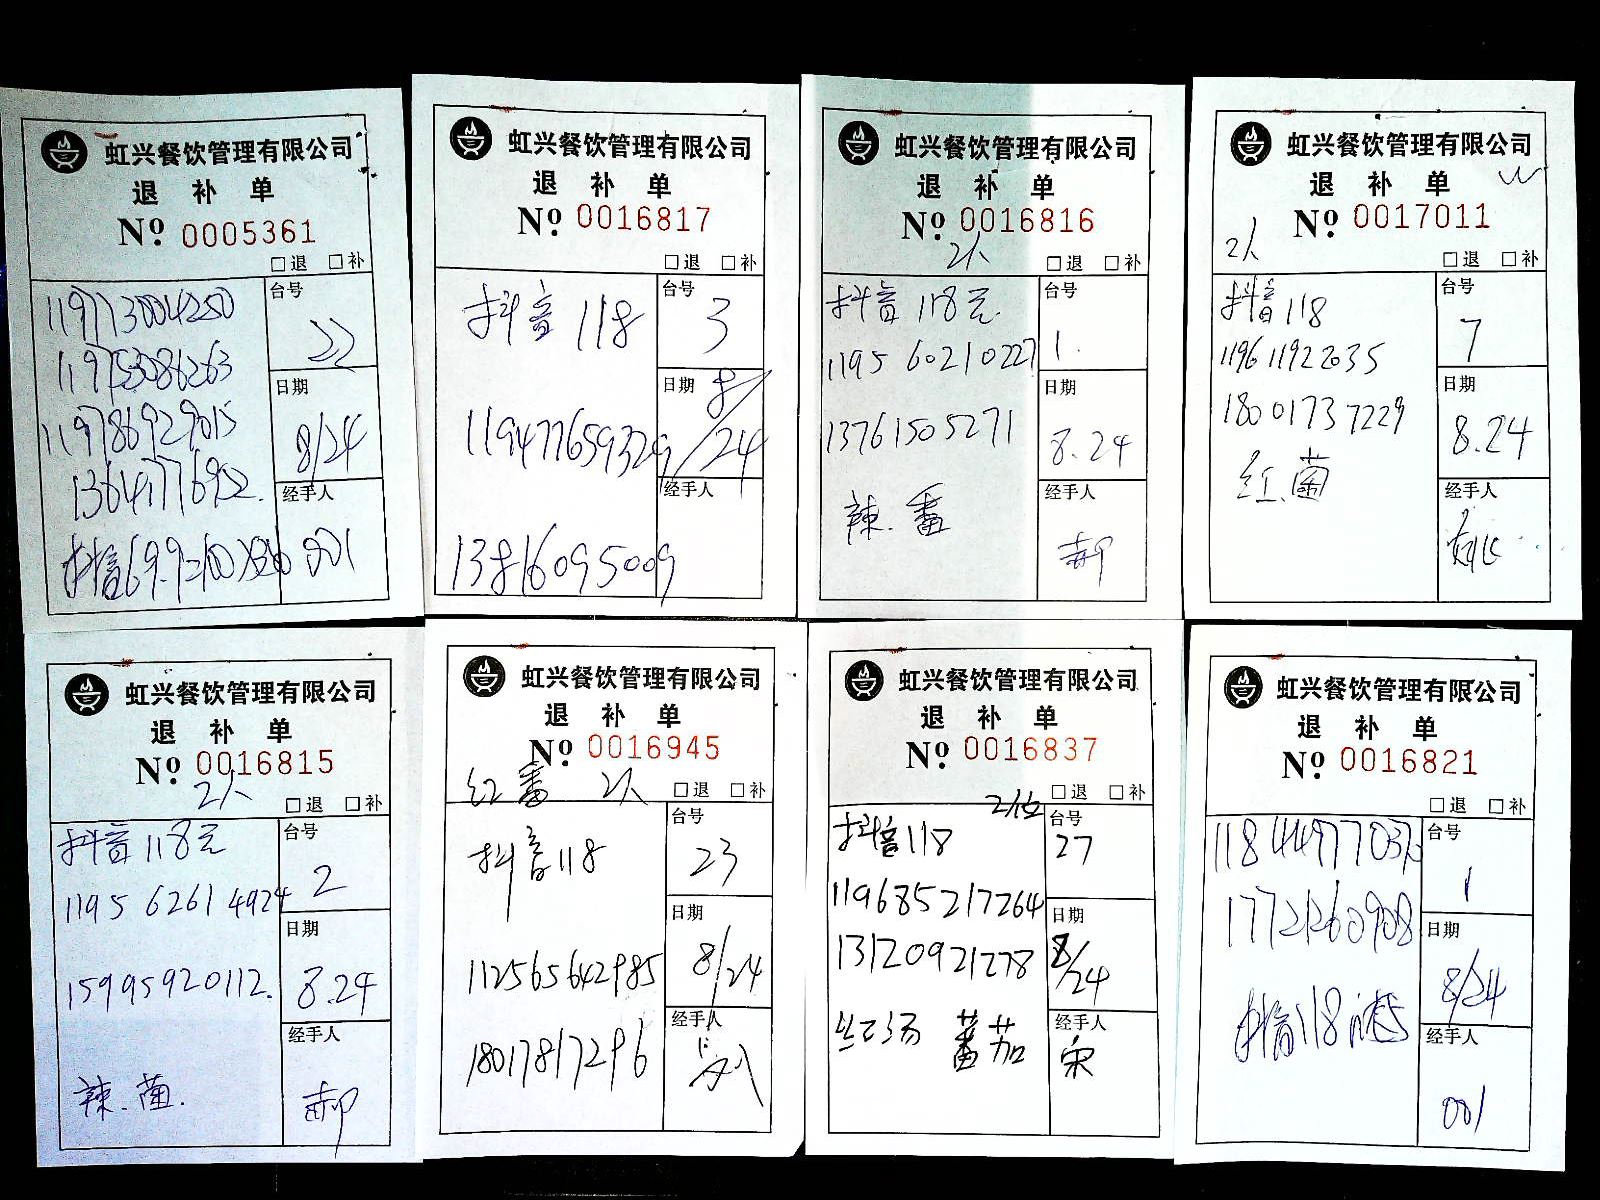 虹兴餐饮管理有限公司
退 补 单
Nº 0005361
□退 □补
119773004250
119753086263
119786929015
13641776952.
抖音69.9
台号
22
日期
8/24
经手人
001
虹兴餐饮管理有限公司
退 补 单
Nº 0016817
□退 □补
抖音 118
119477659329
13816095009
台号
3
日期
8/24
经手人
虹兴餐饮管理有限公司
退 补 单
Nº 0016816
2人
□退 □补
抖音 118元
1195 60210227
13761505271
辣.番
台号
1.
日期
8.24
经手人
郝
虹兴餐饮管理有限公司
退 补 单
Nº 0017011
2人
□退 □补
抖音 118
119611922035
18001737229
红.菌
台号
7
日期
8.24
经手人
虹兴餐饮管理有限公司
退 补 单
Nº 0016815
2人
□退 □补
抖音 118元
1195 6261 4924
15995920112.
辣.菌.
台号
2
日期
8.24
经手人
郝
虹兴餐饮管理有限公司
退 补 单
Nº 0016945
红番 2人
□退 □补
抖音118
112565642985
18017817296
台号
23
日期
8/24
经手人
虹兴餐饮管理有限公司
退 补 单
Nº 0016837
2位
□退 □补
抖音118
119685217264
13120921278
红汤 蕃茄
台号
27
日期
8/24
经手人
宋
虹兴餐饮管理有限公司
退 补 单
Nº 0016821
□退 □补
17721260908
抖音118
台号
1
日期
8/24
经手人
001